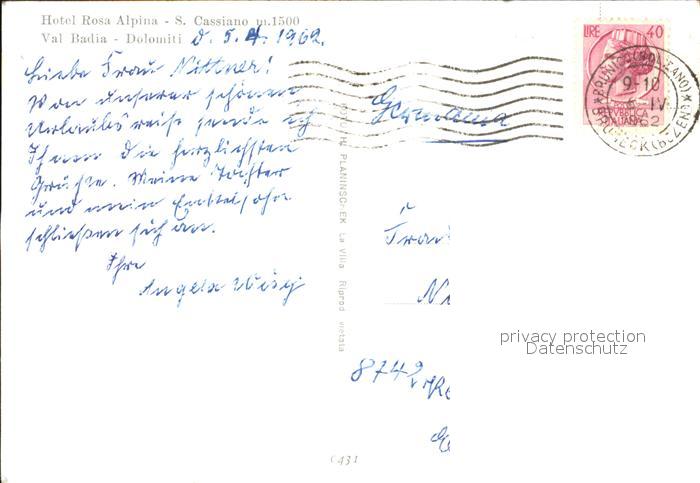 Hotel Rosa Alpina - S. Cassiano m.1500
Val Badia - Dolomiti d. 5.4.1962.
Liebe Frau Nittner!
Von unserer schönen
Urlaubsreise sende ich
Ihnen die herzlichsten
Grüße. Meine Tochter
und mein Enkelsohn
schließen sich an.
Ihre
Angela
LIRE 40
REPUBBLICA
ITALIANA
BRUNICO (BOLZANO)
9-10
IV
62
BRUNECK (BOZEN)
Germania
PLANINSCHEK La Villa Riprod vietata
Frau
Ni
privacy protection
Datenschutz
8742
C431